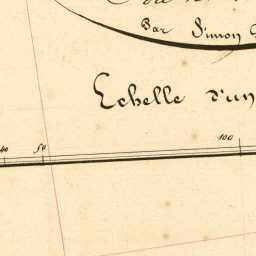 Par Simon
Echelle d'un
50
100